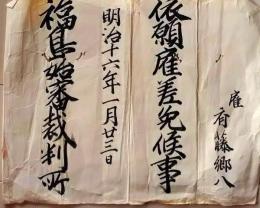 雇 有藤郷八
依願雇差免候事
明治十六年一月廿三日
福島始審裁判所